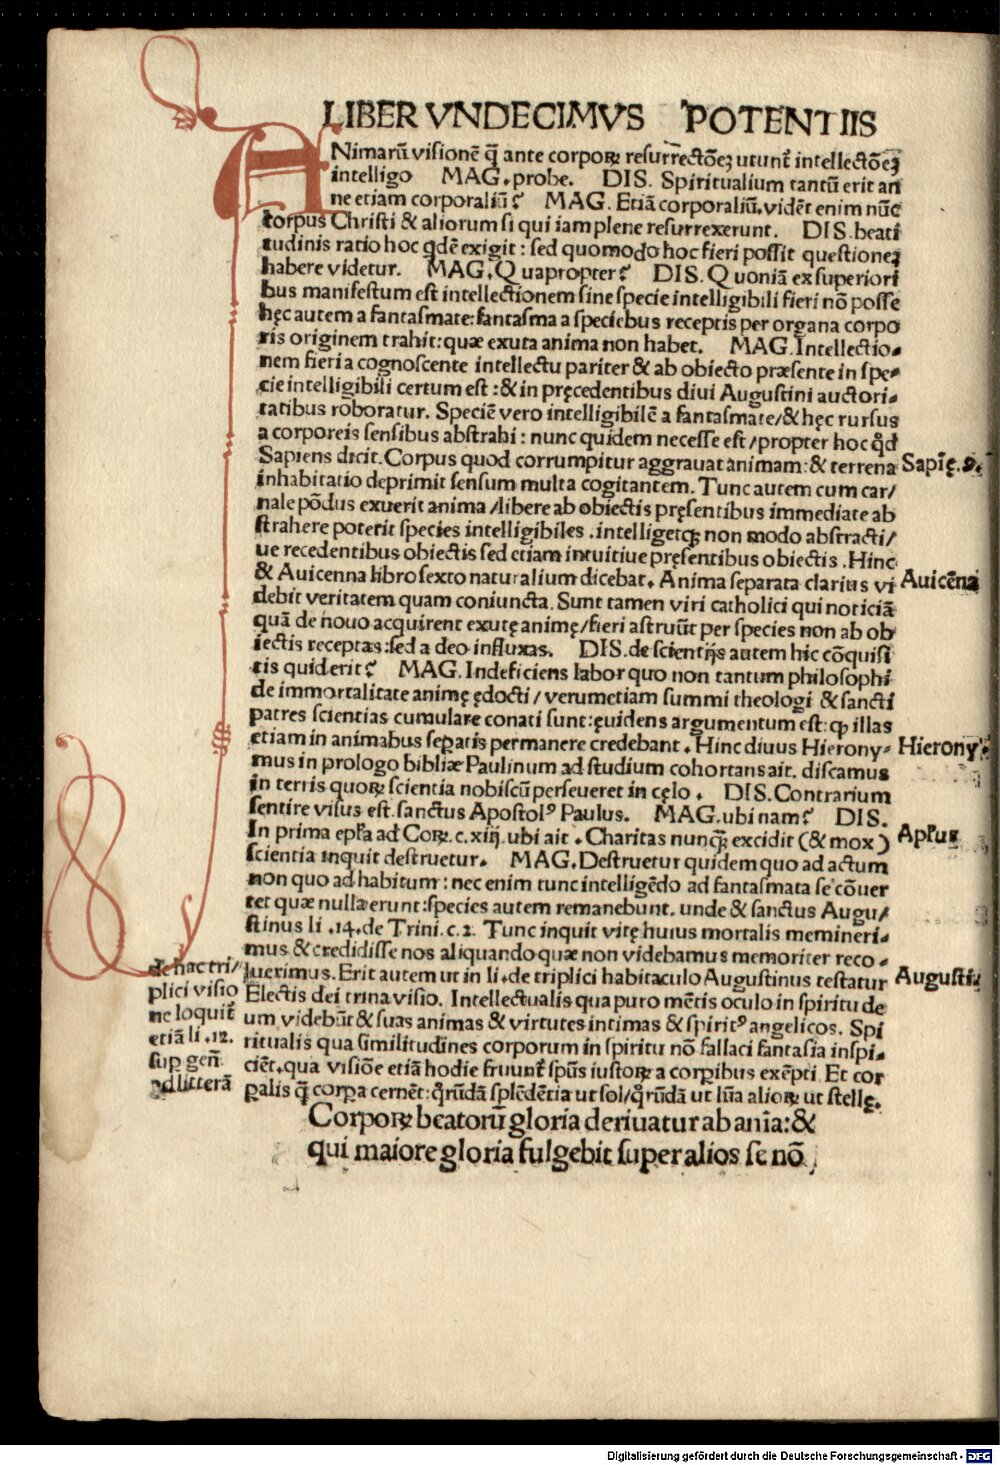 LIBER VNDECIMVS POTENTIIS
ANimarū visionē q̄ ante corpoꝝ resurrectōeʒ utunt᷑ intellectōeʒ
intelligo MAG. probe. DIS. Spiritualium tantū erit an
ne etiam corporaliū? MAG. Etiā corporaliū. vidēt enim nūc
corpus Christi & aliorum si qui iam plene resurrexerunt. DIS. beati
tudinis ratio hoc qdē exigit: sed quomodo hoc fieri possit questioneʒ
habere videtur. MAG. Quapropter? DIS. Quoniā ex superiori
bus manifestum est intellectionem sine specie intelligibili fieri nō posse
hęc autem a fantasmate: fantasma a speciebus receptis per organa corpo
ris originem trahit: quæ exuta anima non habet. MAG. Intellectio-
nem fieri a cognoscente intellectu pariter & ab obiecto præsente in spe-
cie intelligibili certum est: & in pręcedentibus diui Augustini auctori-
tatibus roboratur. Speciē vero intelligibilē a fantasmate/ & hęc rursus
a corporeis sensibus abstrahi: nunc quidem necesse est/ propter hoc qđ
Sapiens dicit. Corpus quod corrumpitur aggrauat animam: & terrena
Sapię. 9.
inhabitatio deprimit sensum multa cogitantem. Tunc autem cum car/
nale pōdus exuerit anima/ libere ab obiectis pręsentibus immediate ab
strahere poterit species intelligibiles. intelligetqꝫ non modo abstracti/
ue recedentibus obiectis sed etiam intuitiue pręsentibus obiectis. Hinc
& Auicenna libro sexto naturalium dicebat. Anima separata clarius vi
Auicēna
debit veritatem quam coniuncta. Sunt tamen viri catholici qui noticiā
quā de nouo acquirent exutę animę/ fieri astruūt per species non ab ob
iectis receptas: sed a deo influxas. DIS. de scientijs autem hic cōquisi
tis quid erit? MAG. Indeficiens labor quo non tantum philosophi
de immortalitate animę ędocti/ verumetiam summi theologi & sancti
patres scientias cumulare conati sunt: ęuidens argumentum est: ꝙ illas
etiam in animabus sepatis permanere credebant. Hinc diuus Hierony-
Hierony'
mus in prologo bibliæ Paulinum ad studium cohortans ait. discamus
in terris quoꝝ scientia nobiscū perseueret in cęlo. DIS. Contrarium
sentire visus est. sanctus Apostolꝰ Paulus. MAG. ubi nam? DIS.
In prima epl'a ad Coꝝ. c. xiij. ubi ait. Charitas nunqꝫ excidit (& mox)
Apl'us
scientia inquit destruetur. MAG. Destruetur quidem quo ad actum
non quo ad habitum: nec enim tunc intelligēdo ad fantasmata se cōuer
tet quæ nulla erunt: species autem remanebunt. unde & sanctus Augu/
stinus li .14. de Trini. c. 2. Tunc inquit vitę huius mortalis memineri-
mus & credidisse nos aliquando quæ non videbamus memoriter reco-
luerimus. Erit autem ut in li. de triplici habitaculo Augustinus testatur
Augusti/
Electis dei trina visio. Intellectualis qua puro mētis oculo in spiritu de
um videbūt & suas animas & virtutes intimas & spiritꝰ angelicos. Spi
ritualis qua similitudines corporum in spiritu nō fallaci fantasia inspi-
ciēt. qua visiōe etiā hodie fruunt᷑ spūs iustoꝝ a corꝑibus exēpti. Et cor
ꝑalis q̄ corꝑa cernēt: qrūdā splēdētia ut sol/ qrūdā ut lūa alioꝝ ut stellę.
de hac tri/
plici visio
ne loquit᷑
etiā li .12.
sup gen̄.
ad litterā
Corpoꝝ beatorū gloria deriuatur ab aīa: &
qui maiore gloria fulgebit super alios se nō
Digitalisierung gefördert durch die Deutsche Forschungsgemeinschaft - DFG